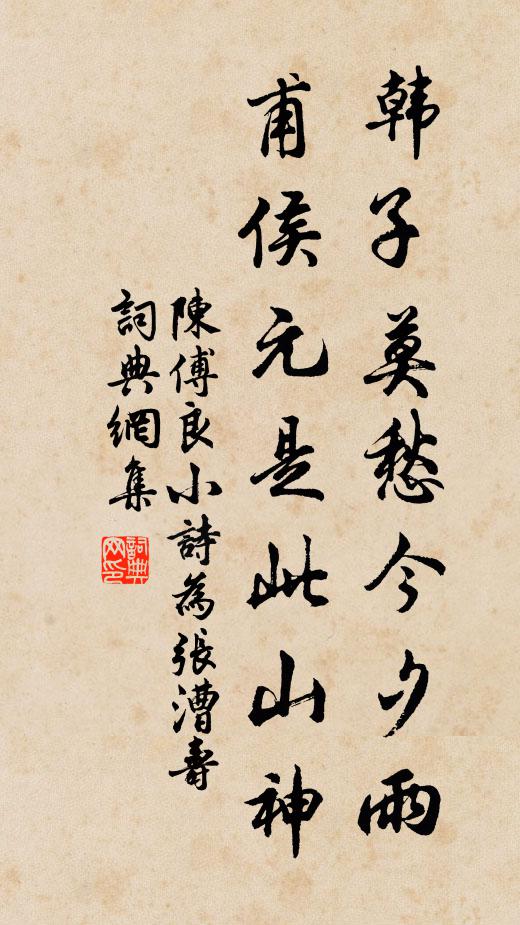 韩子莫愁今夕雨
甫侯元是此山神
陳傅良小詩為張漕壽
詞典網集
詞典网印